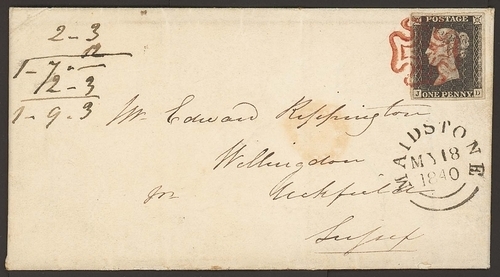 2-3
12
1-7-
12-3
1-9-3
POSTAGE
ONE PENNY
J D
Mr Edward Rippington
Willingdon
nr Uckfield
Sussex
MAIDSTONE
MY 18
1840